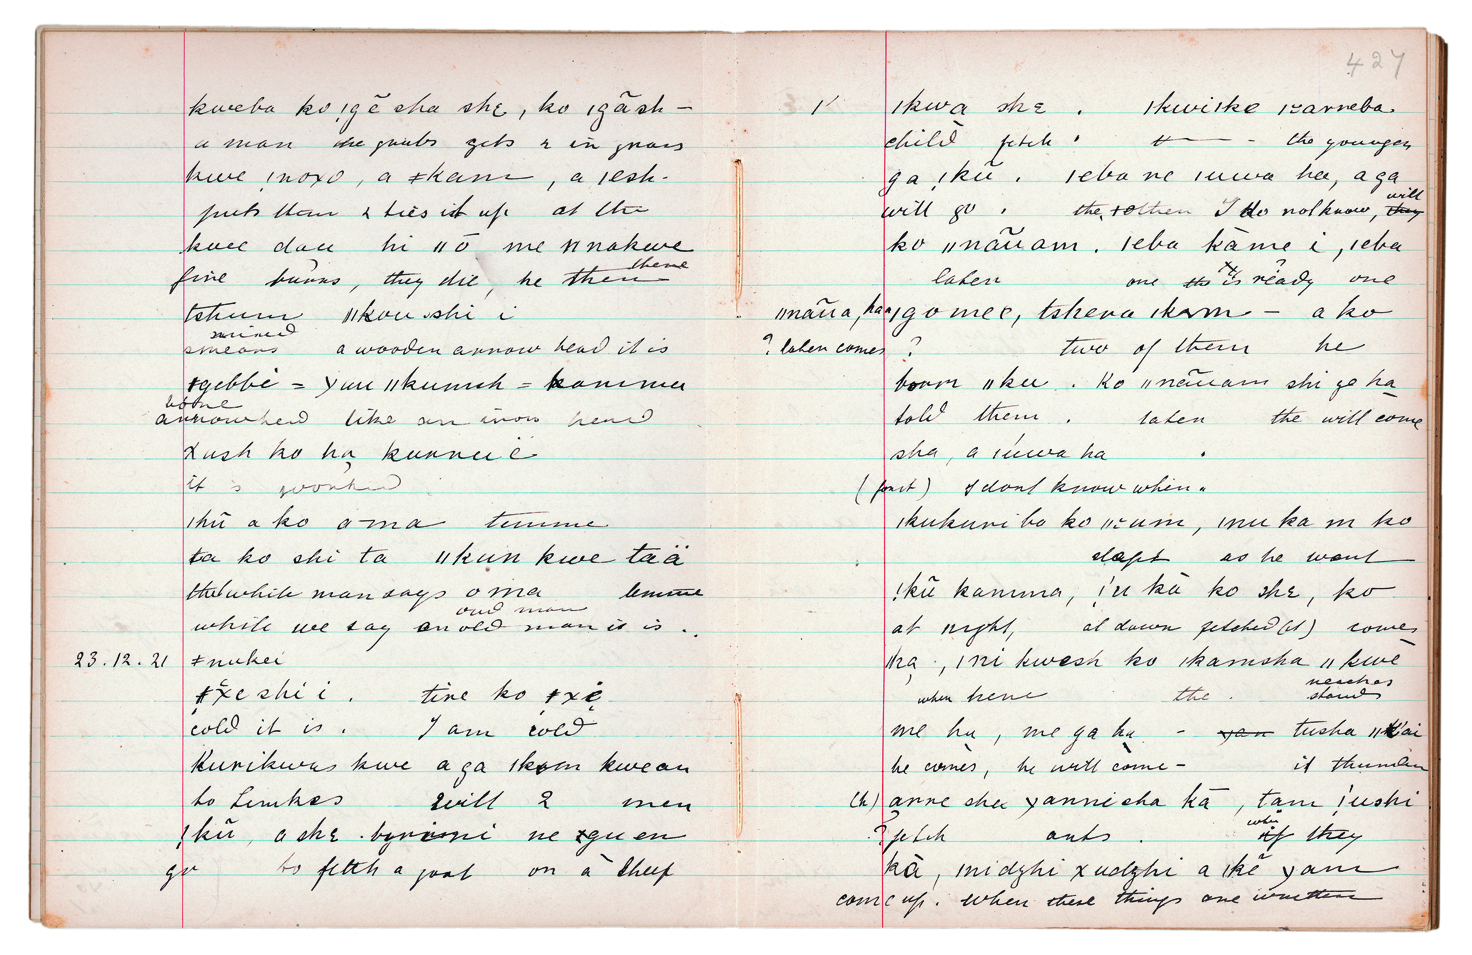 kweba ko ǀgẽ sha she, ko ǀgãsh –
a man the grubs gets & in grass
kwe ǃnoxo, a ǂkam, a ǀesh.
puts them & ties it up at the
kwee dau hi ǁō me nnakwe
fire burns, they die, he then there
tshum ǁkou shi i
smears a wooden arrow head it is
smeared
ǂgebbi = yuu ǁkumsh = kamma
bone
arrowhead like an iron head
xush ko ha kunnuië
it is worked
ǀkū a ko oma temme
ta ko shi ta ǁkun kwe taä
the white man says oma temme
while we say an old man it is .
our man
23.12.21 ǂnuhei
ǂxeshi i . tire ko ǂxė
cold it is . I am cold
Kurikwas kwe a ga ǀkam kwean
to Lemkes will 2 men
ǃkũ, a she byrinni ne ǂguen
go to fetch a goat or a sheep
427
ǀʹ ǀkwa she . ǀkwiǀke ǀarreba
child fetch . the younger
ga ǃkũ . ǀeba ne ǀuwa ha, a ga
will go . the other I do not know, they will
ko ǁnãuam . ǀeba kàme i, ǀeba
later one is ready one
ǁnãua, ha ǀgo mee, tshera ǀkam – a ko
? later comes ? two of them he
boom ǁku . Ko ǁnãuam shi ge ha
told them . later the will come
sha, a ǀuwa ha .
(fast) I dont know when.
ǀkukuri ba ko ǁum, ǀnu ka m ko
slept as he went
ǃkũ kamma, ǃu kà ko she, ko
at night, at dawn fetched (it) comes
ǁha, ǀni kwesh ko ǀkamsha ǁkwē
when here the . reaches stands
me ha, me ga ha – yan tusha ǁkai
he comes, he will come – if thunder
(h) anne sha yannisha kā, tam ǃushi
? fetch ants . if they
when
kā, ǀnidzhi xudzhi a ǀkē yam
come up . when these things are written